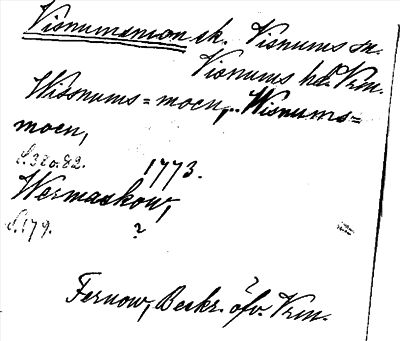 Visnumsmon sk. Visnums sn.
Visnums hd. Vrm.
Wissnums=moen, Wisnums=
moen,
S. 38 o. 82. 1773.
Wermaskow,
S. 179. ?
Fernow, Beskr. öfv. Vrm.